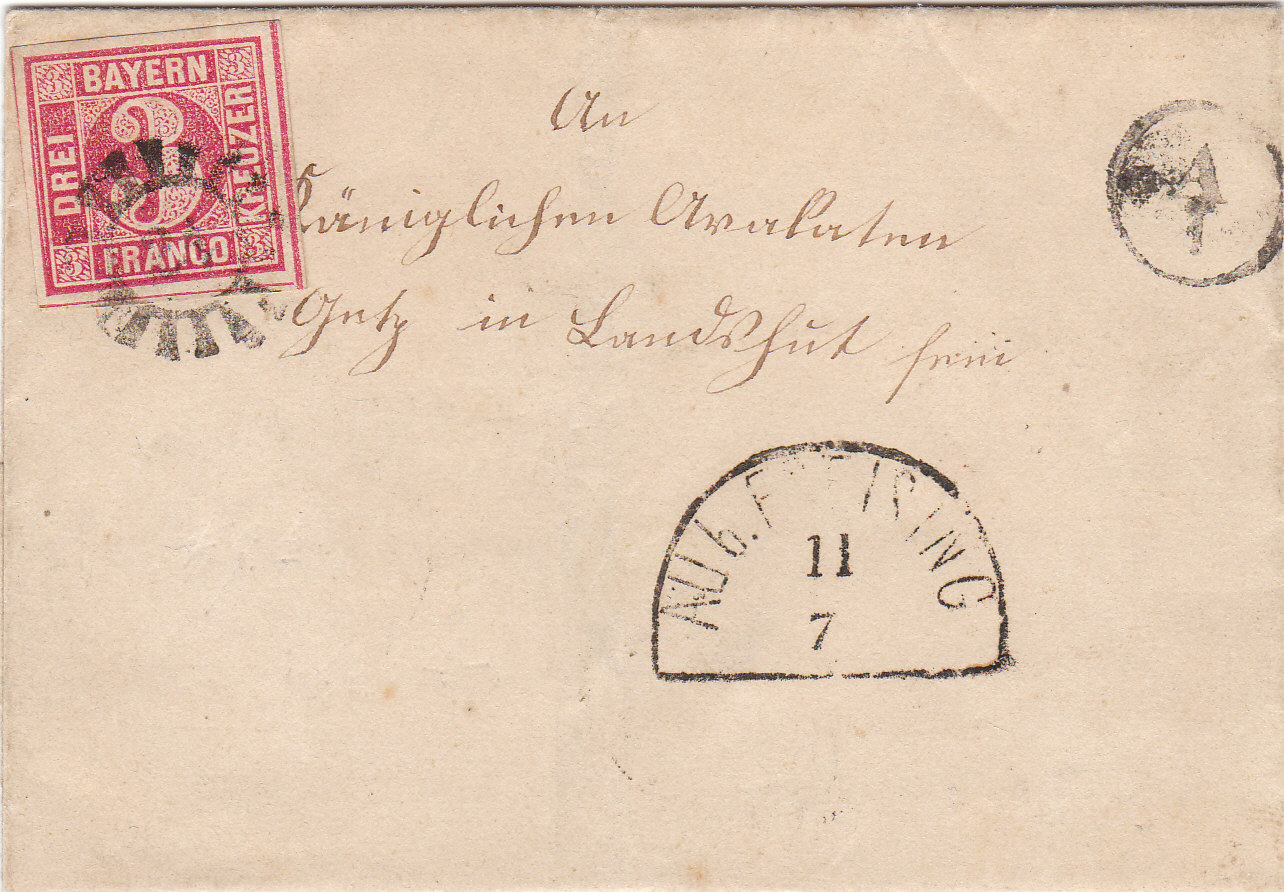 BAYERN
DREI
3
KREUZER
FRANCO
An
Königlichen Avakaten
Getz in Landshut
A
1
AU b. FREISING
11
7